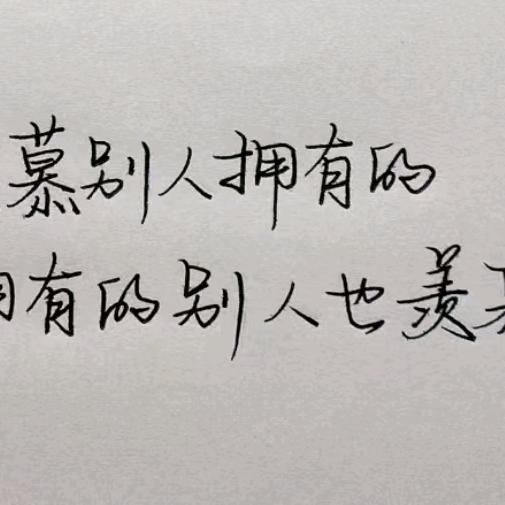 慕别人拥有的
有的别人也羡